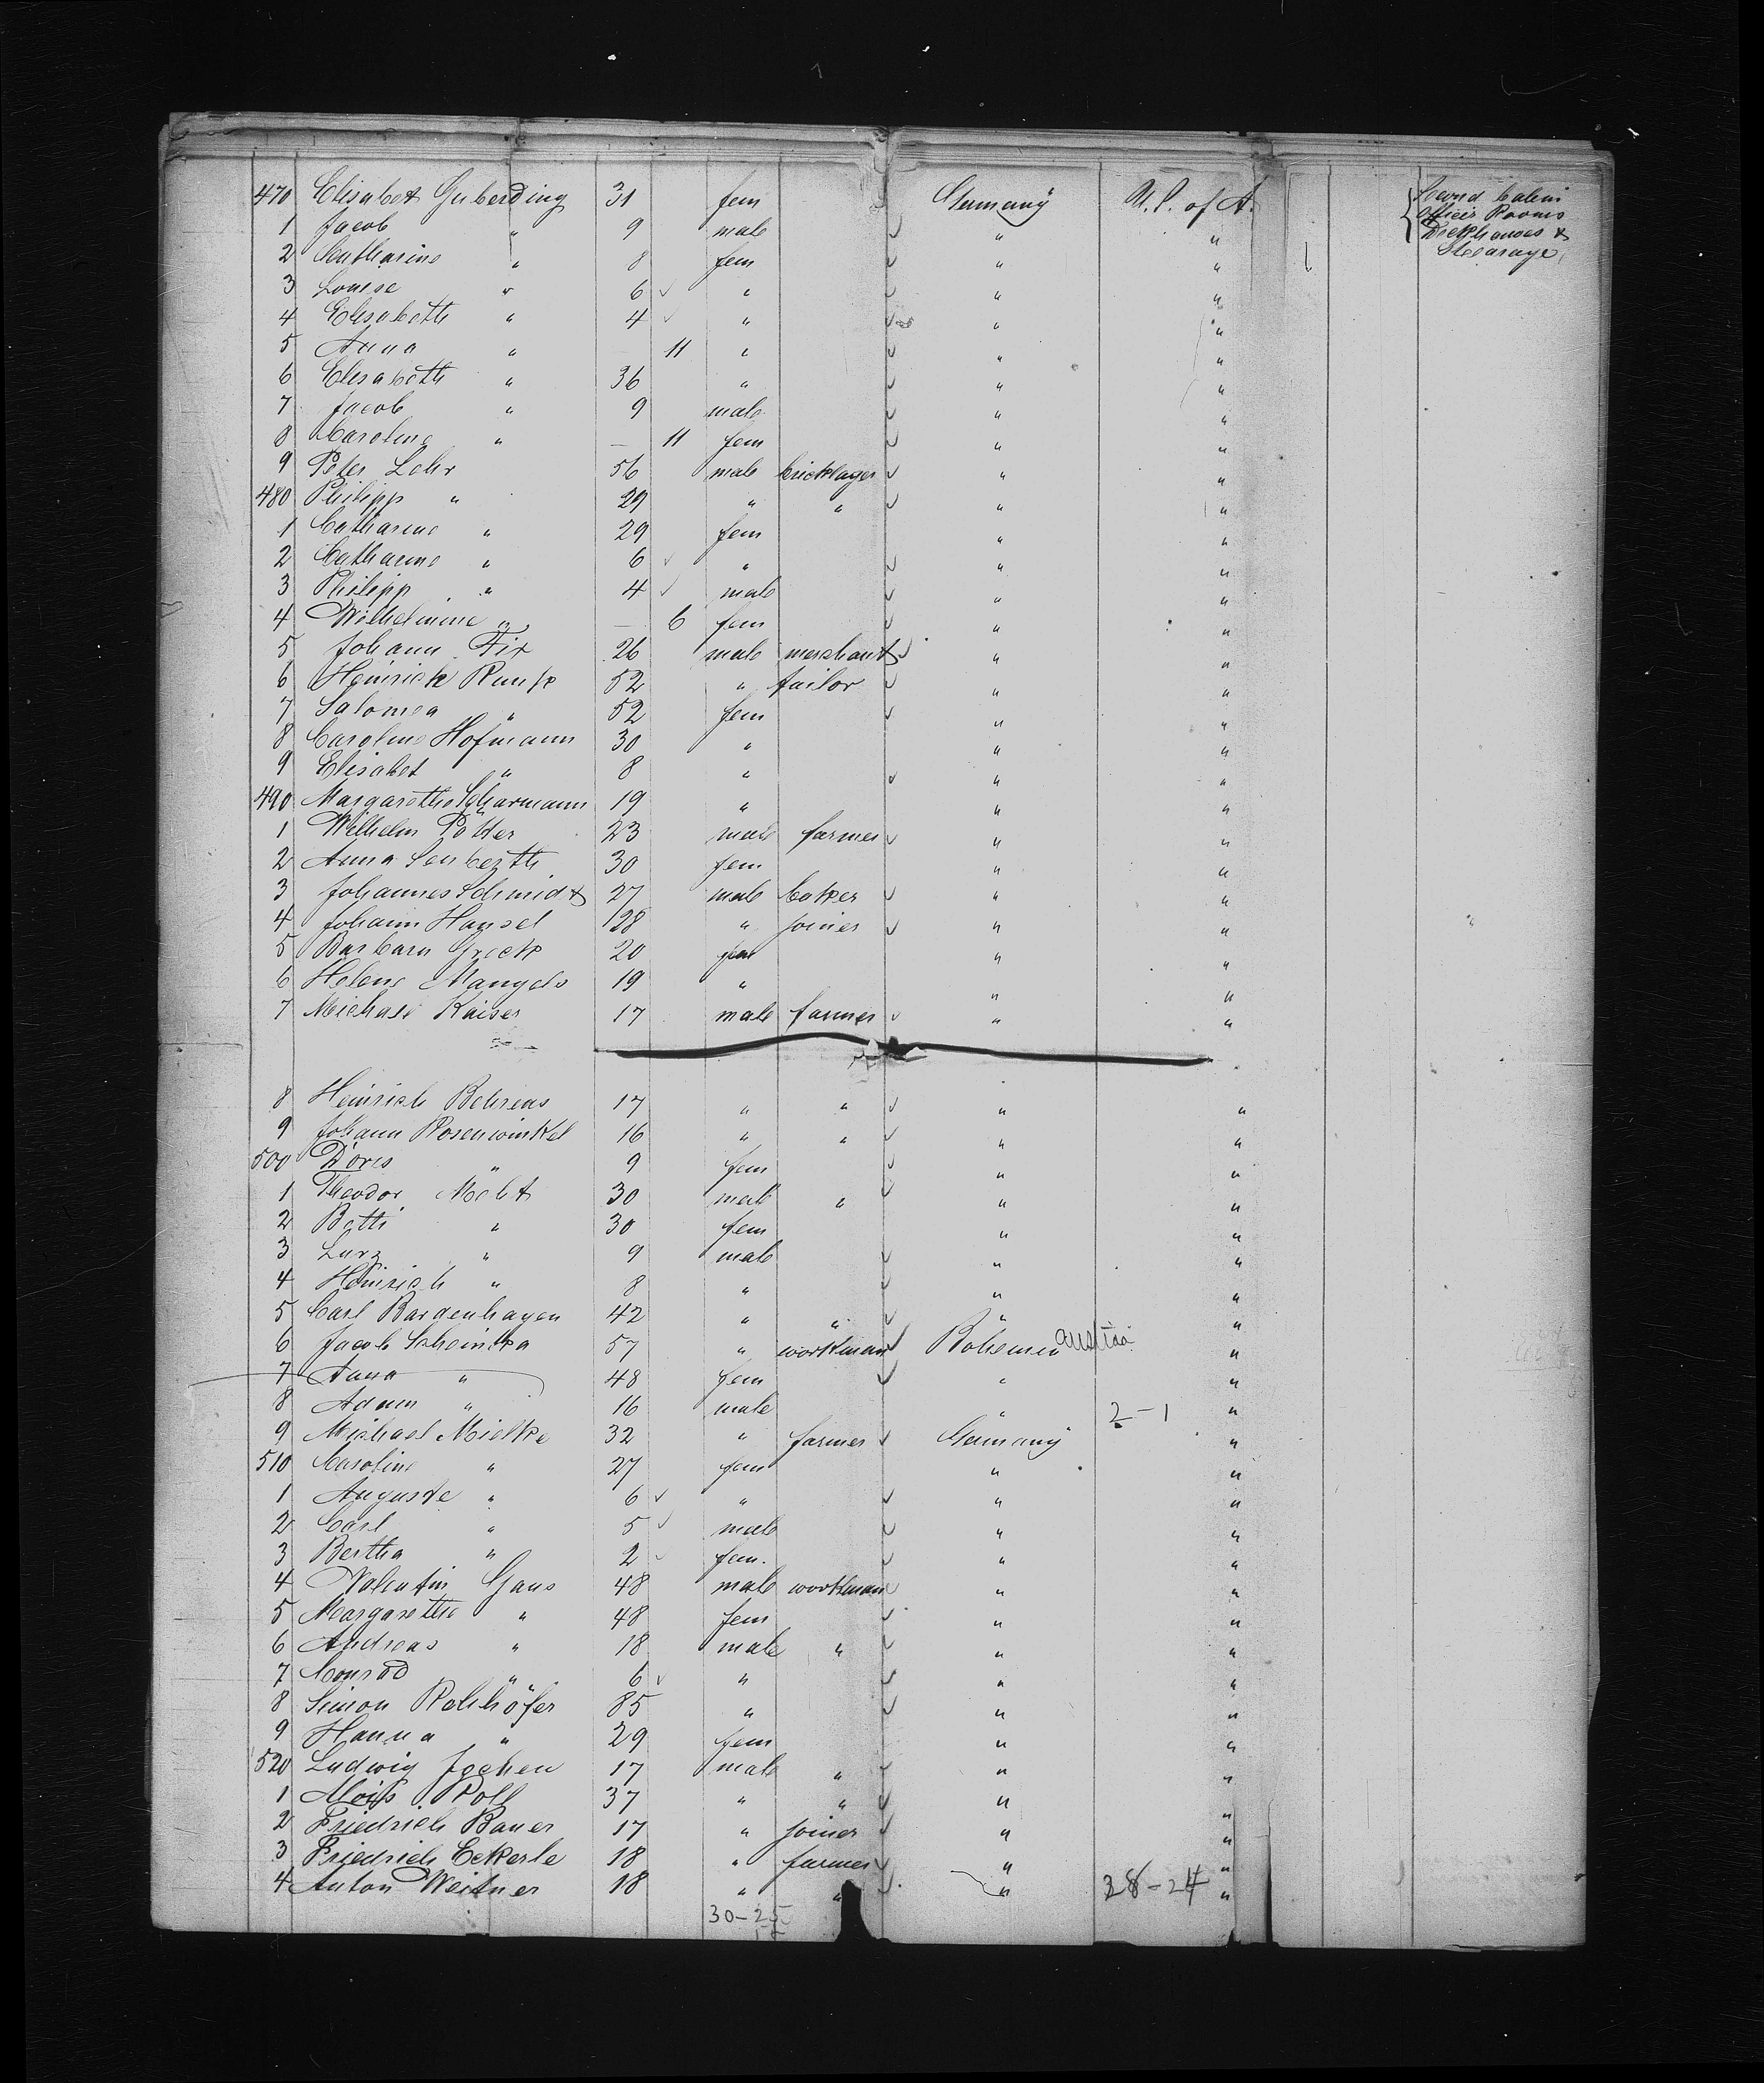 470 Elisabet Guberding 31 fem Germany U.S. of A. Second Cabin
1 Jacob " 9 male " " Officir Rooms
2 Catharine " 8 fem " " Deckhouses &
3 Louise " 6 " " " Stearage
4 Elisabeth " 4 " " "
5 Anna " — 11 " " "
6 Elisabeth " 36 " " "
7 Jacob " 9 male " "
8 Caroline " — 11 fem " "
9 Peter Lehr 56 male bricklayer " "
480 Philipp " 29 " " " "
1 Catharine " 29 fem " "
2 Catharine " 6 " " "
3 Philipp " 4 male " "
4 Wilhelmine " — 6 fem " "
5 Johann Fix 26 male merchant " "
6 Heinrich Rumpf 52 " tailor " "
7 Salomea " 52 fem " "
8 Caroline Hofmann 30 " " "
9 Elisabet " 8 " " "
490 Margarethe Scharmann 19 " " "
1 Wilhelm Pötter 23 male farmer " "
2 Anna Seuberth 30 fem " "
3 Johannes Schmidt 27 male baker " "
4 Johann Hansel 28 " joiner " "
5 Barbara Greck 20 fem " "
6 Helene Mangels 19 " " "
7 Michael Kaiser 17 male farmer " "
8 Heinrich Behrens 17 " " " "
9 Johann Rosenwinkel 16 " " " "
500 Dores " 9 fem " "
1 Theodor Meht 30 male " " "
2 Betti " 30 fem " "
3 " 9 male " "
4 Heinrich " 8 " " "
5 Carl Bargenhagen 42 " " " "
6 Jacob Scheinka 57 " workman Bohemia Austria "
7 Anna " 48 fem " "
8 Adam " 16 male " 2-1 "
9 Michael Mielke 32 " farmer Germany "
510 Caroline " 27 fem " "
1 Auguste " 6 " " "
2 Carl " 5 male " "
3 Bertha " 2 fem. " "
4 Valentin Gans 48 male workman " "
5 Margarethe " 48 fem " "
6 Andreas " 18 male " " "
7 Conrad " 6 " " "
8 Simon Rohlhöfer 85 " " "
9 Hanna " 29 fem " "
520 Ludwig Jochen 17 male " " "
1 Alois Roll 37 " " " "
2 Friedrich Bauer 17 " joiner " "
3 Friedrich Eckerle 18 " farmer " "
4 Anton Weitner 18 " " " 28-24 "
30-25